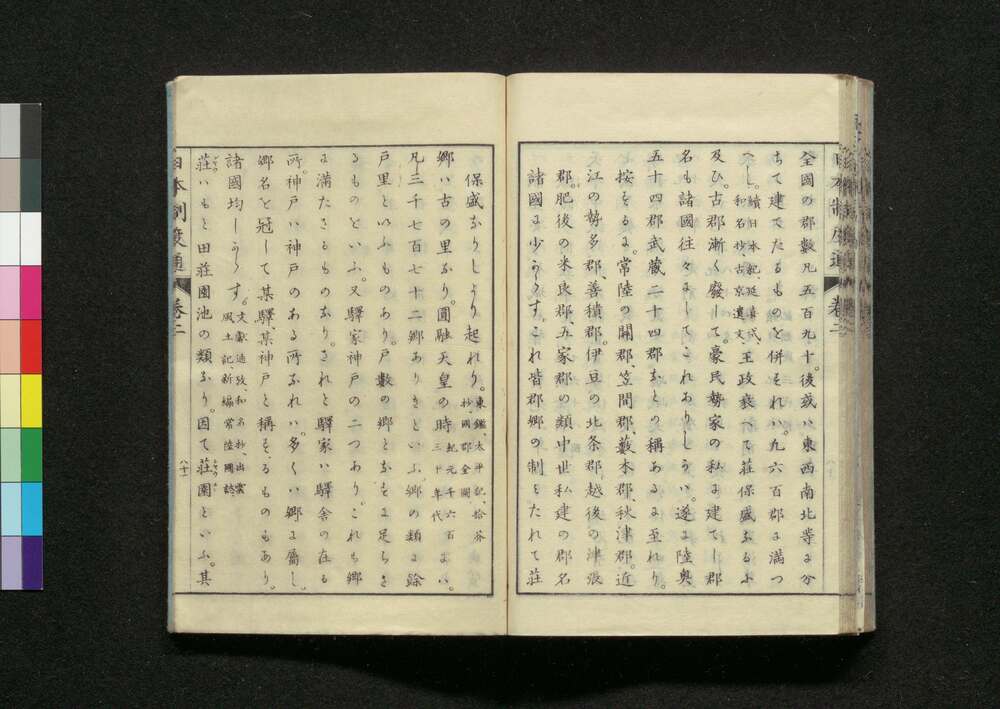 全國の郡數凡五百九十。後或ハ東西南北等に分
ちて建てたるものを併すれハ。九六百郡に滿つ
へし。續日本紀、延喜式、和名抄、古京遺文 王政衰へて莊保盛なるに
及ひ。古郡漸く廢して。豪民勢家の私に建てし郡
名も諸國往々にしてこれありしかハ。遂に陸奥
五十四郡武藏二十四郡なとの稱あるに至れり。
按するに。常陸の關郡、笠間郡、藪本郡、秋津郡。近
江の勢多郡、善積郡。伊豆の北条郡、越後の津張
郡。肥後の米良郡五家郡の類中世私建の郡名
諸國に少からす。これ皆郡郷の制みたれて莊
日本制度通 卷二
保盛なりしより起れり。東鑑、太平記、拾芥抄、國郡全圖
郷ハ古の里なり。圓融天皇の時 紀元千六百三十年代 にハ。
凡三千七百七十二郷ありきといふ。郷の類に餘
戸里といふものあり。戸數の郷となすに足らさ
るものをいふ。又驛家神戸の二つあり。これも郷
に滿たさるものなり。されと驛家ハ驛舎の在る
所。神戸ハ神戸のある所なれハ。多くハ郷に屬し。
郷名を冠して某驛某神戸と稱するものもあり。
諸國均しからす。文獻通攷、和名抄、出雲風土記、新編常陸國誌
莊ハもと田莊園池の類なり。因て莊園といふ。其
日本制度通 卷二